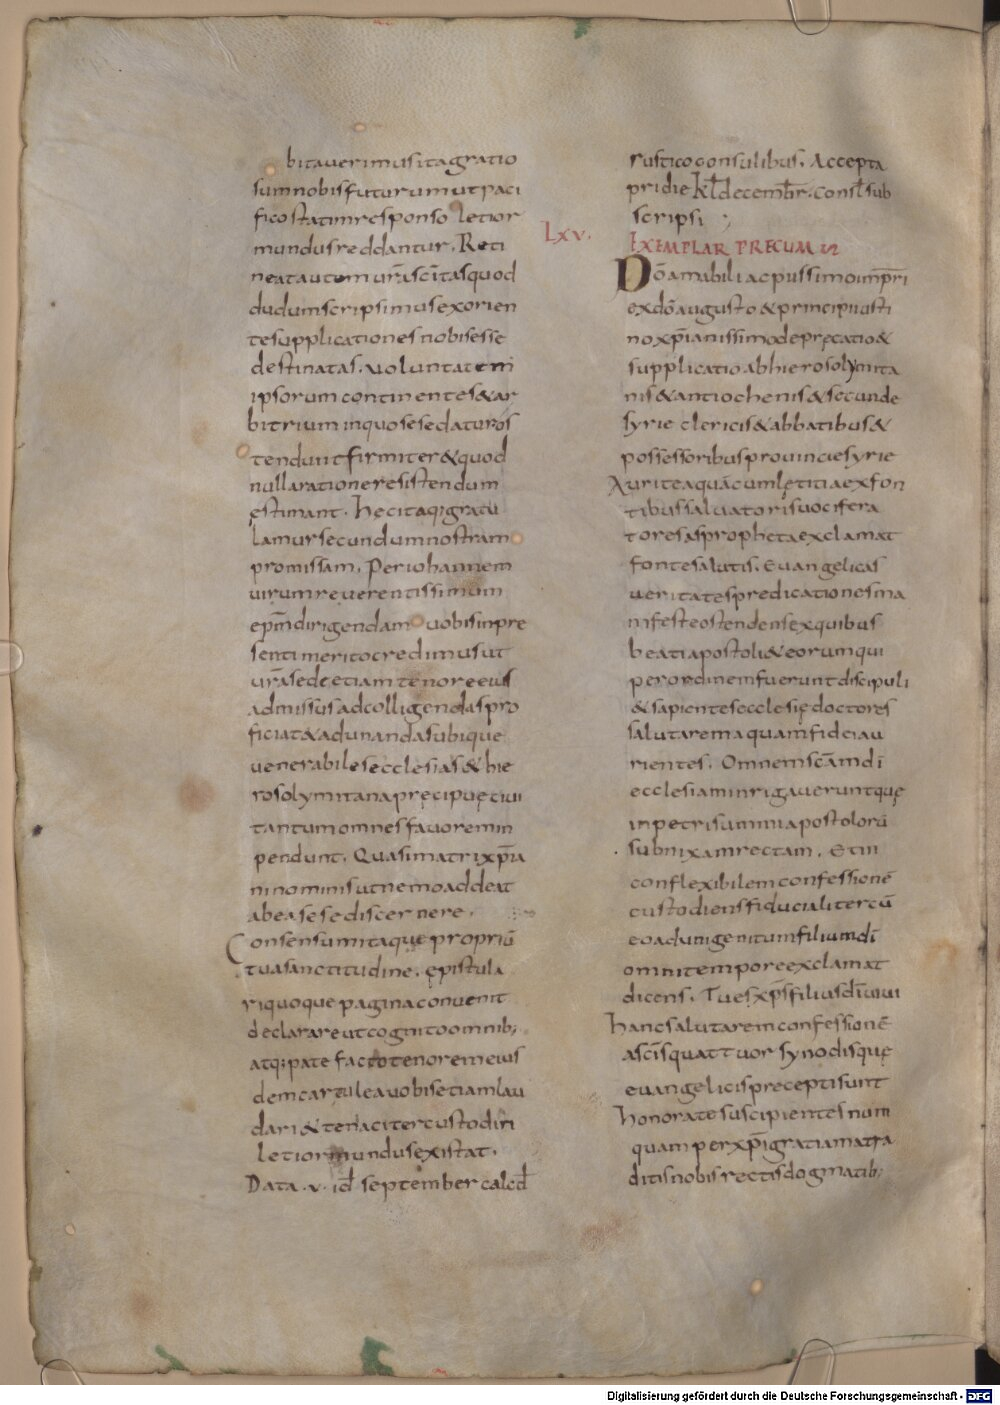 bitauerimus ita gratio
sum nobis futurum ut paci
fico statim responso letior
mundus reddantur. Reti
neat autem ur̄a sc̄itas quod
dudum scripsimus ex orien
te supplicationes nobis esse
destinatas. uoluntatem
ipsorum continentes & ar
bitrium in quo se sedaturos
tendunt firmiter & quod
nulla ratione resistendum
ęstimant. hec itaq; gratu
lamur secundum nostram
promissam. Per iohannem
uirum reuerentissimum
epm̄ dirigendam uobis in pre
senti merito credimus ut
ur̄a sede etiam tenore eius
admissus ad colligendas pro
ficiat & adunandas ubique
uenerabiles ecclesias & hie
rosolymitana pręcipuę cui
tantum omnes fauorem in
pendunt. Quasi matri xp̄ia
ni nominis ut nemo addeat
ab ea sese discernere.
Consensum itaquę propriū
tua sanctitudine. epistula
ri quoque pagina conuenit
declarare ut cognito omnib;
atq; patefacto tenorem eius
dem cartule a uobis etiam lau
dari & tenaciter custodiri
letior mundus existat.
Data . v . id septembercalcd
rustico consulibus. Accepta
pridie kl decembr. consl sub
scripsi ;
Lxv.
EXEMPLAR PRECUM
Dō amabili ac piissimo imp̄ri
ex dō augusto & principi iusti
no xp̄ianissimo deprecatio &
supplicatio ab hierosolymita
nis & antiochenis & secunde
syrie clericis & abbatibus &
possessoribus prouincie syrie
Aurite aquā cum lętitia ex fon
tibus saluatoris uocifera
tores as propheta exclamat
fonte salutis. Euangelicas
ueritates predicationes ma
nifeste ostendens ex quibus
beati apostoli & eorum qui
per ordinem fuerunt discipuli
& sapientes ecclesię doctores
salutarem aquam fidei au
rientes. Omnem sc̄am dī
ecclesiam inrigauerunt quę
in petri summi apostolorū
subnixam rectam. Et in
conflexibilem confessionē
custodiens fiducialiter cū
eo ad unigenitum filium dī
omni tempore exclamat
dicens. Tu es xp̄s filius dī uiui
hanc salutarem confessionē
a sc̄is quattuor synodisquę
euangelicis preceptis unt
honorate suscipientes num
quam per xp̄i gratiam a tra
ditis nobis rectis dogmatib;
Digitalisierung gefördert durch die Deutsche Forschungsgemeinschaft - DFG